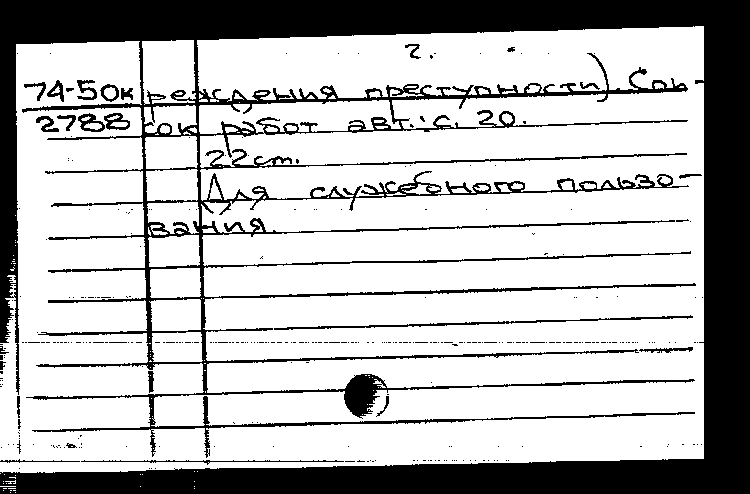 2.
74-50к реждения преступности). Спи-
2788 сок работ авт.: с. 20.
22 см.
Для служебного пользо-
вания.